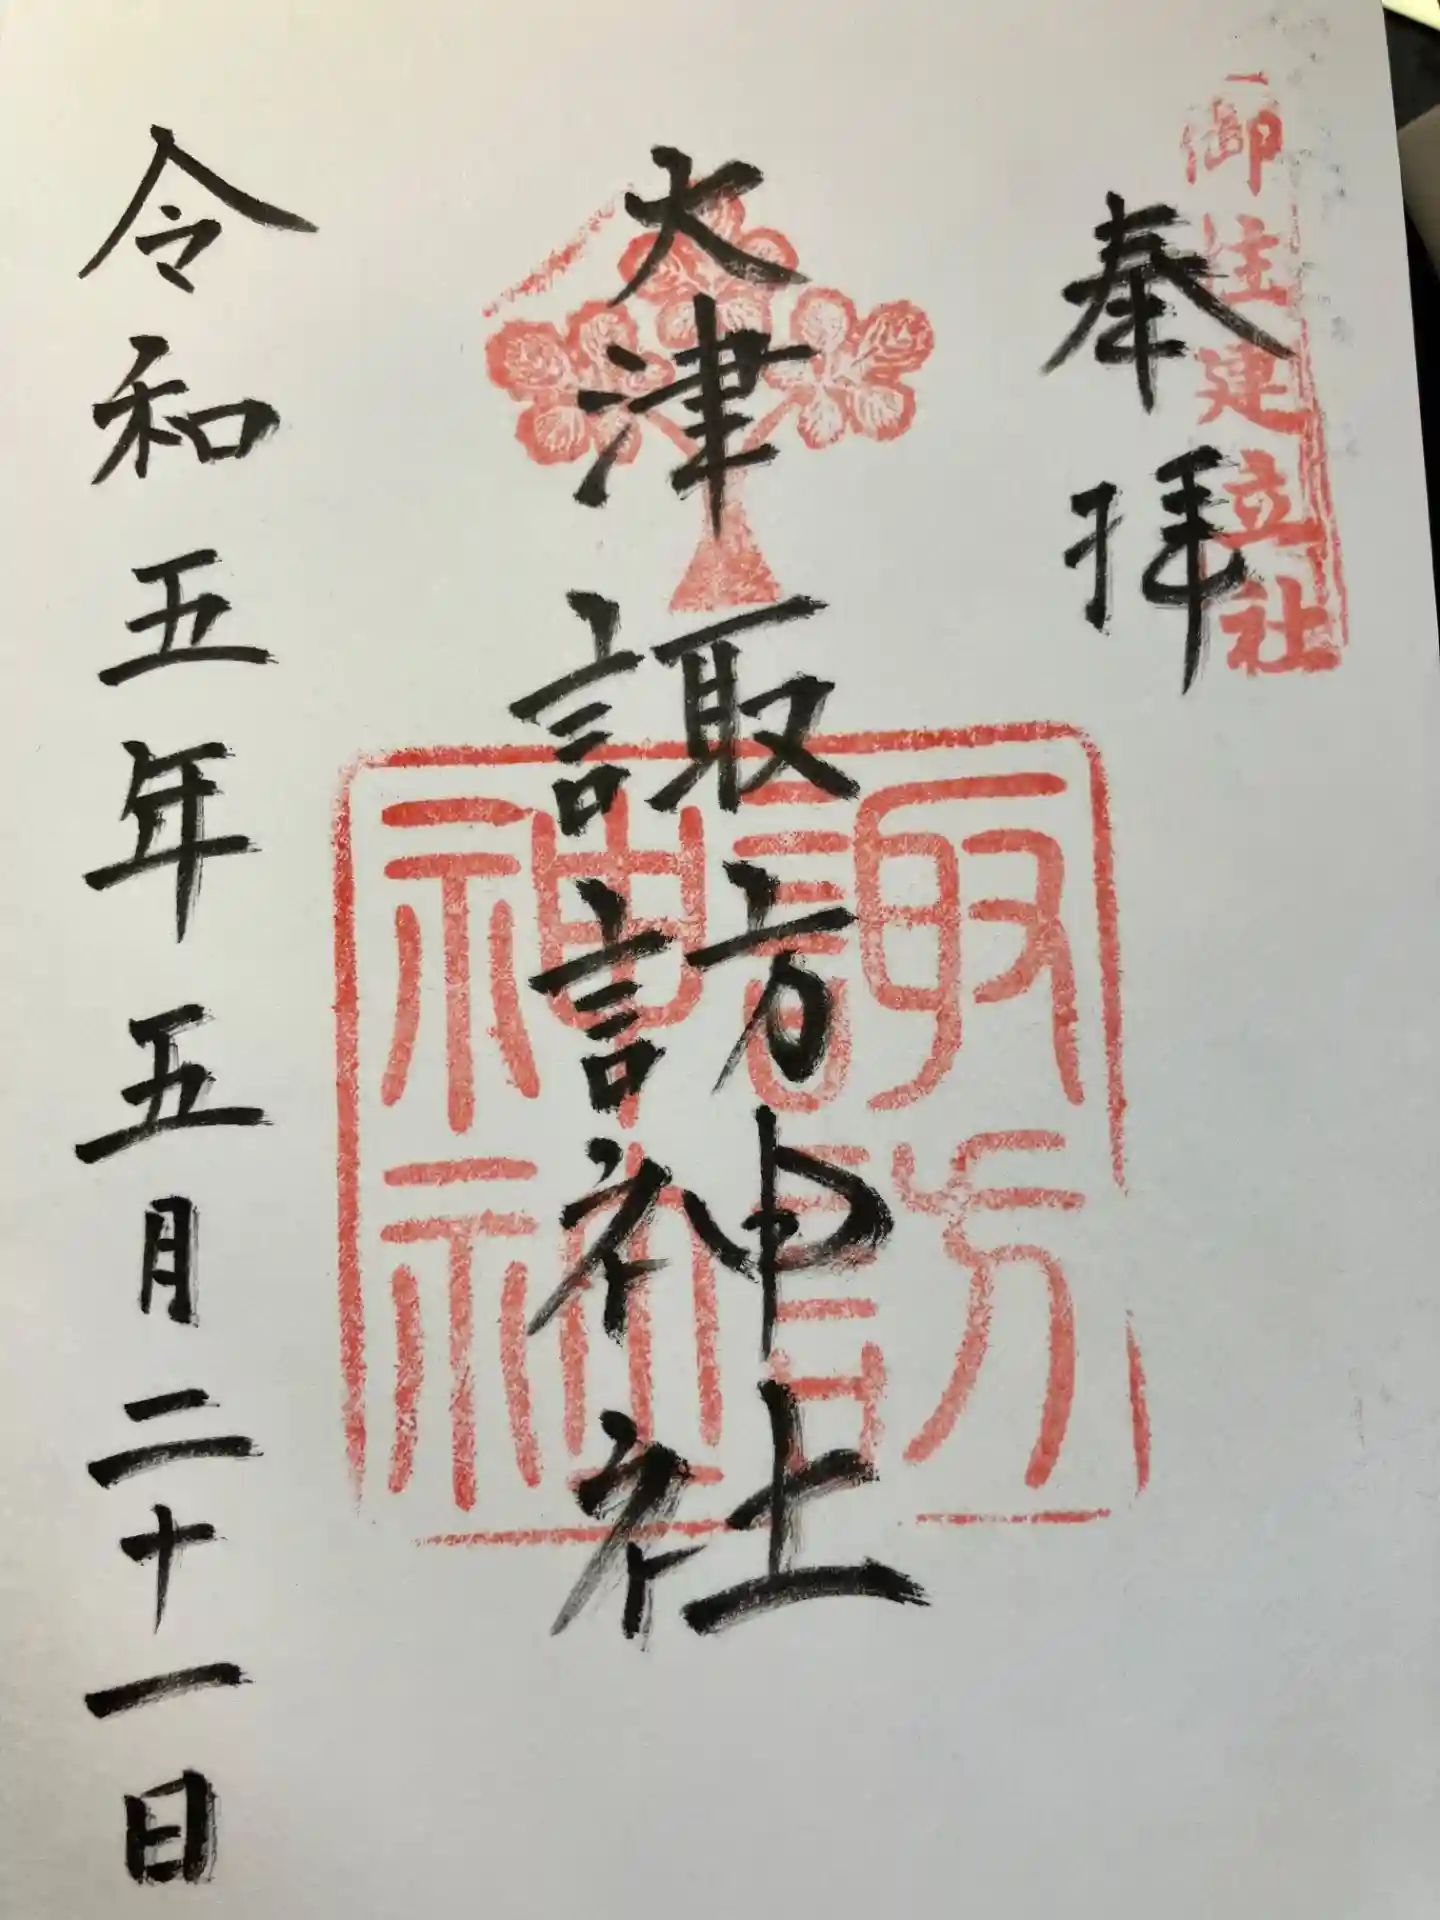 御柱建立社
奉拝
大津諏訪神社
諏訪
神社
令和五年五月二十一日